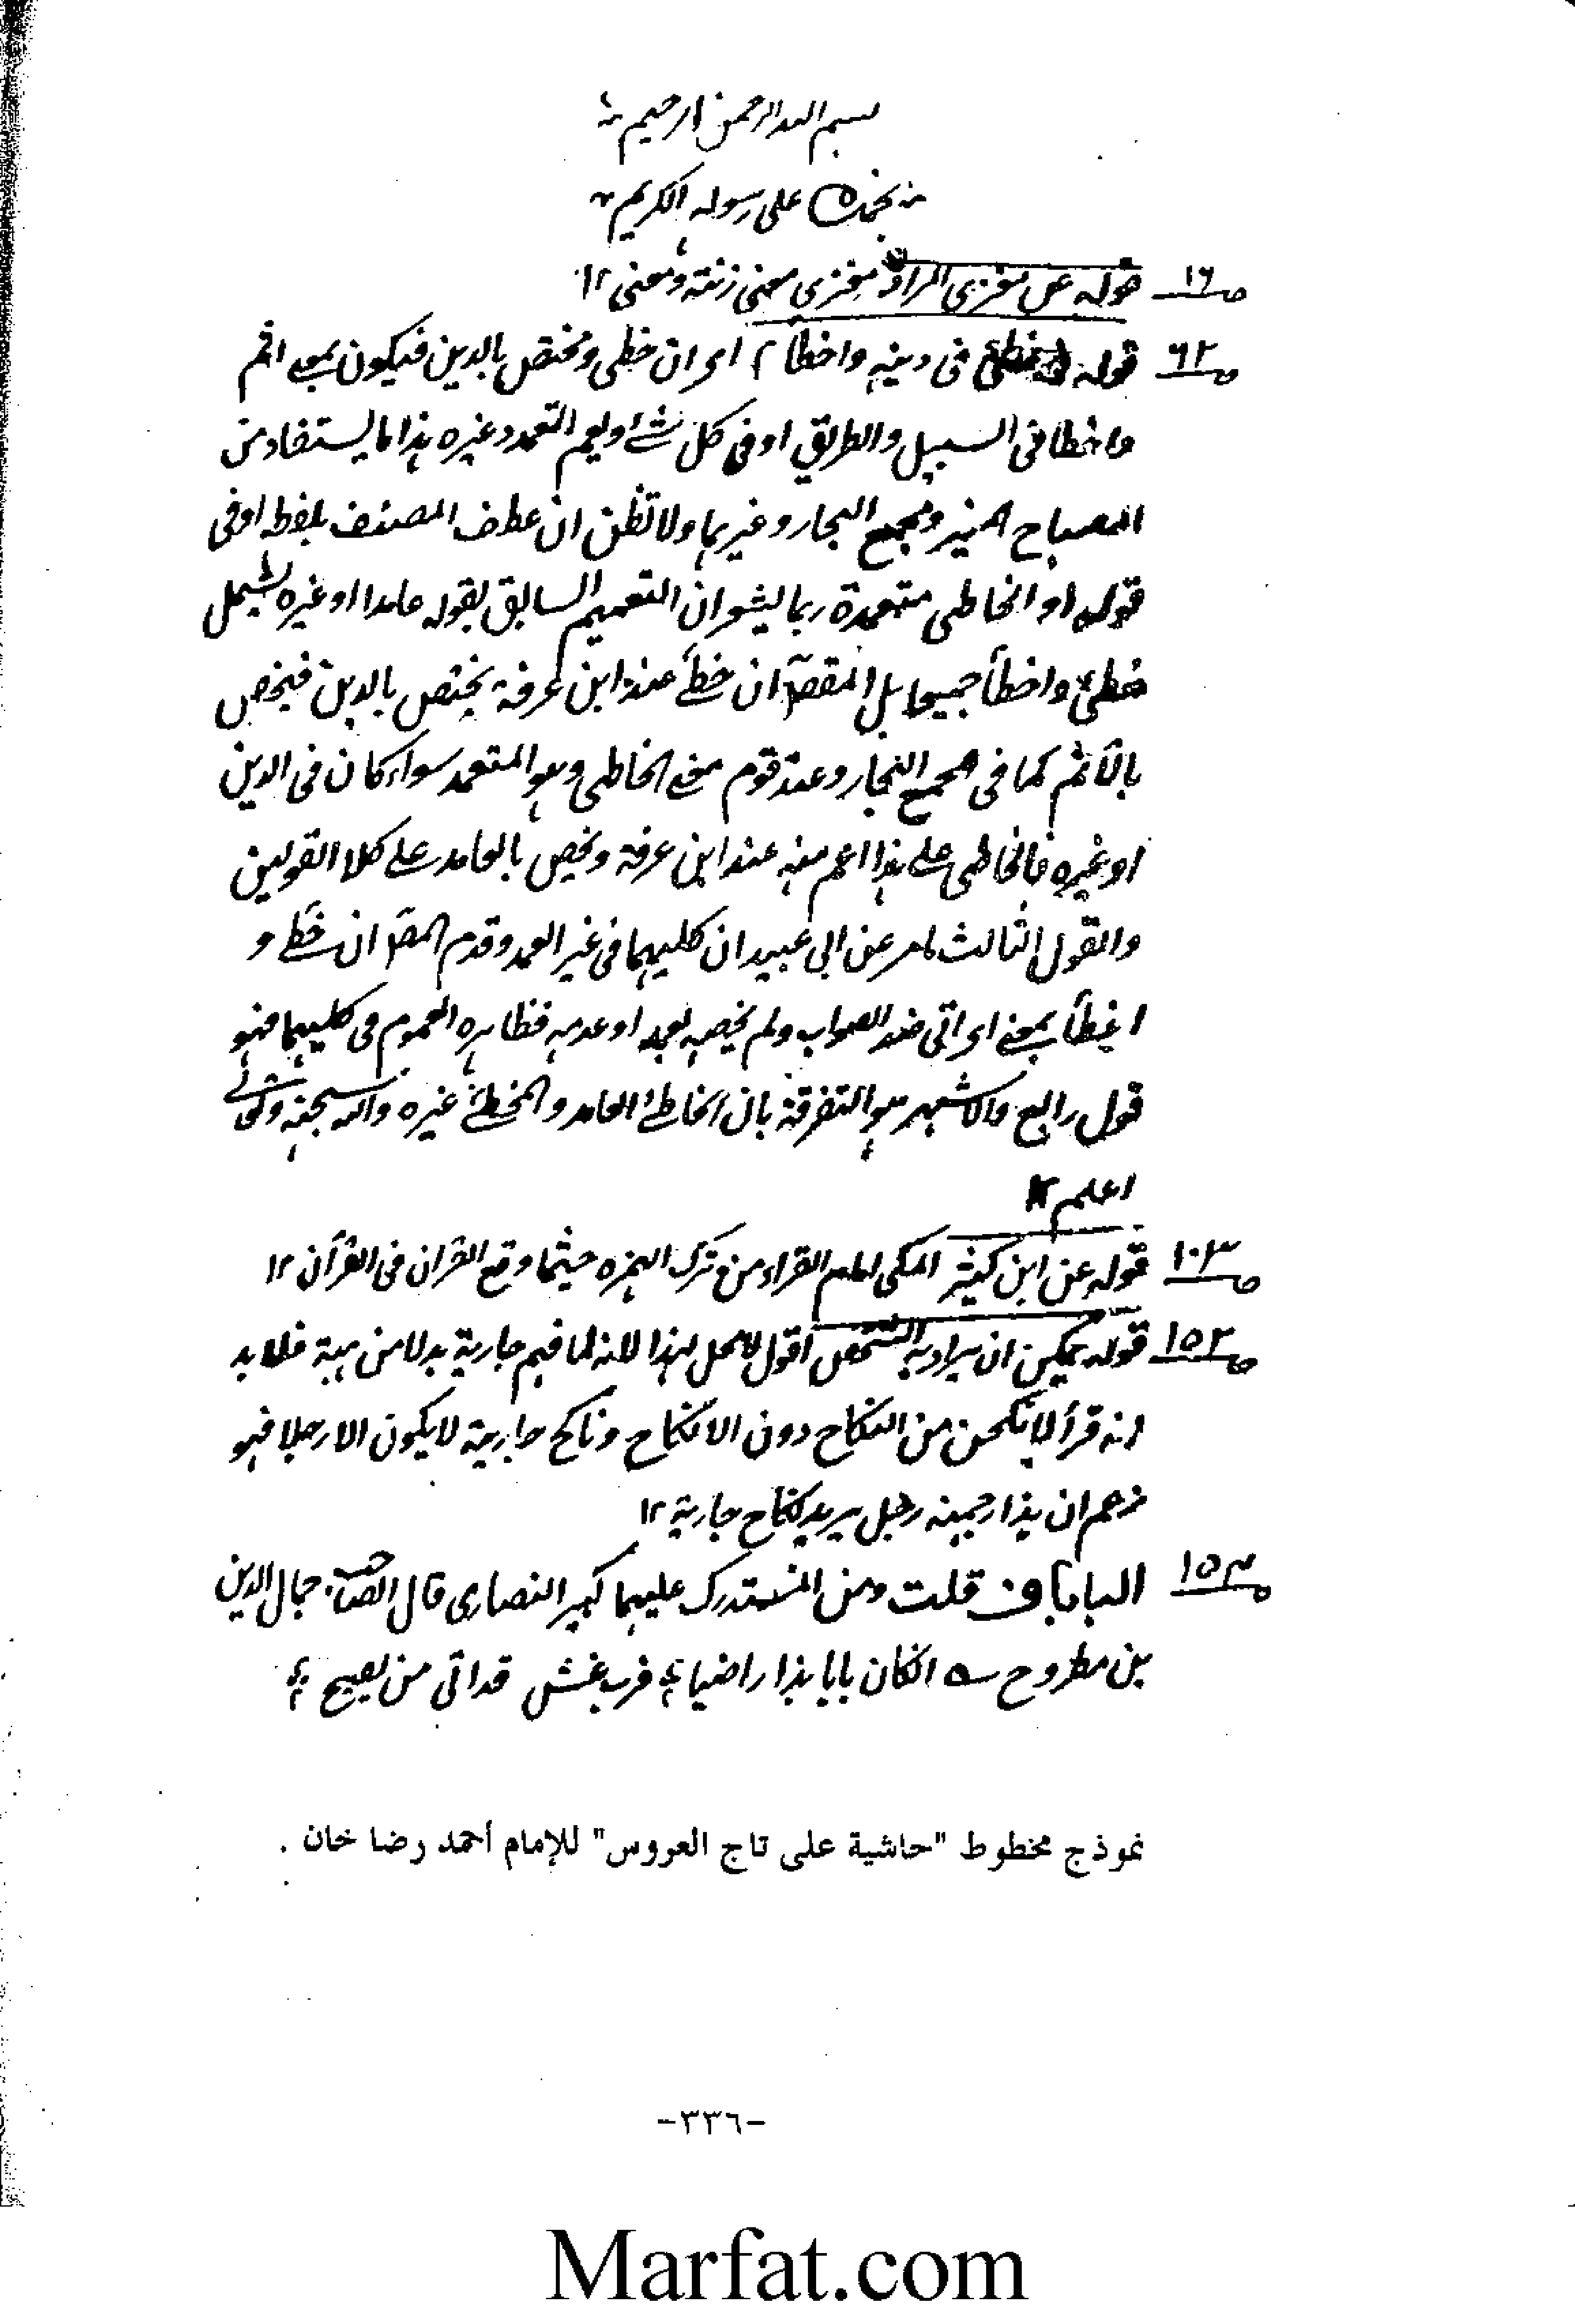 بسم الله الرحمن الرحیم
نحمده علی رسوله الکریم
ص ١٦ قوله عن مغزى المراد مغزى معنى زنتة ومعنى ١٢
ص ٦٢ قوله خطئ فی دینه واخطأ ای ان خطی ومختص بالدین فیکون بمعنے اثم
واخطا فی السبیل والطریق او فی کل شئ او یعم التعمد وغیره هذا ما یستفاد من
المصباح المنیر ومجمع البحار وغیرہما ولا تظن ان عطف المصنف بلفظ او فی
قوله او الخاطی متعمدة ربما یشعر ان التعمیم السابق بقوله عامدا او غیره لیشمل
خطئ واخطأ جمیعا بل المقصـ ان خطأ عند ابن عرفة یختص بالدین فیخص
بالآثم کما فی مجمع البحار وعند قوم معنے الخاطی وهو المتعمد سواء کان فی الدین
او غیره فالخاطی علی هذا اعم منه عند ابن عرفة ویخص بالعامد علے کلا القولین
والقول الثالث لما مر عن ابی عبید ان کلیهما فی غیر العمد وقدم المصـ ان خطئ و
اخطأ بمعنے ای اتی ضد الصواب ولم یخصه بعمد او عدمه فظاہره العموم فی کلیهما فهو
قول رابع والاشهر هو التفرقة بان الخاطئ العامد والمخطئ غیره والله سبحنه وتعالے
اعلم ١٢
ص ١٠٣ قوله عن ابن کثیر المکی امام القراء من ترک الہمزه حیثما وقع القران فی القرآن ١٢
ص ١٥٢ قوله یمکن ان یراد به الشخص اقول لا محل لهذا لانه لما فهم جاریة بدلا من ببة فلا بد
انه قرأ لانکحن من النکاح دون الانکاح وناکح جاریة لا یکون الا رجلا فهو
زعم ان هذا رجل یرید نکاح جاریة ١٢
ص ١٥٣ البابا ف قلت ومن المستدرک علیهما کبیر النصاری قال الصاحب جمال الدین
بن مطروح ان کان بابا بهذا راضیا فرب غش قد اتی من نصیح
نموذج مخطوط "حاشية على تاج العروس" للإمام أحمد رضا خان .
-٣٣٦-
Marfat.com